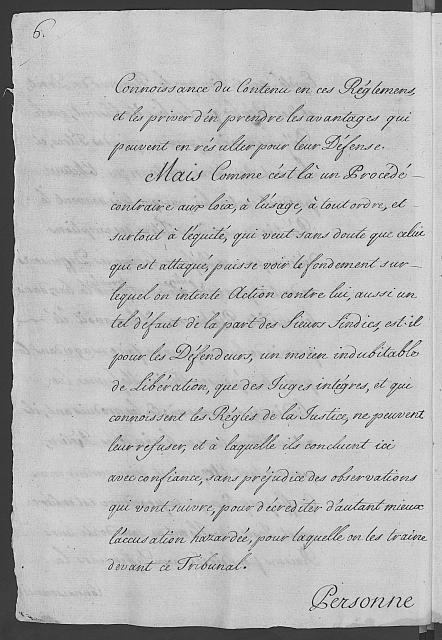 6.
Connoissance du Contenu en ces Réglemens,
et les priver d'en prendre les avantages qui
peuvent en résulter pour leur Défense.
Mais Comme c'est là un Procedé
contraire aux loix, à l'usage, à tout ordre, et
surtout à l'équité, qui veut sans doute que celui
qui est attaqué, puisse voir le fondement sur-
lequel on intente Action contre lui, aussi un
tel défaut de la part des Sieurs Sindics, est-il
pour les Défendeurs, un moïen indubitable
de Libération, que des Juges intégres, et qui
connoissent les Régles de la Justice, ne peuvent
leur refuser, et à laquelle ils concluent ici
avec confiance, sans préjudice des observations
qui vont suivre, pour décréditer d'autant mieux
l'accusation hazardée, pour laquelle on les traine
devant cé Tribunal.
Personne